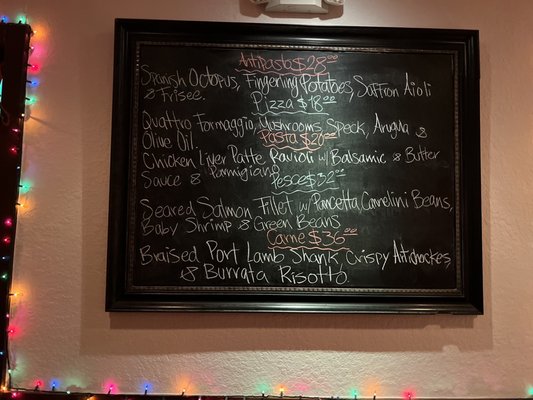 Antipasta $28.00
Spanish Octopus, Fingerling Potatoes, Saffron Aioli
& Frisee.
Pizza $18.00
Quattro Formaggio, Mushrooms, Speck, Arugula &
Olive Oil.
Pasta $26.00
Chicken Liver Patte Ravioli w/ Balsamic & Butter
Sauce & Parmigiano
Pesce $32.00
Seared Salmon Fillet w/ Pancetta Cannelini Beans,
Baby Shrimp & Green Beans
Carne $36.00
Braised Port Lamb Shank, Crispy Artichockes,
& Burrata Risotto.